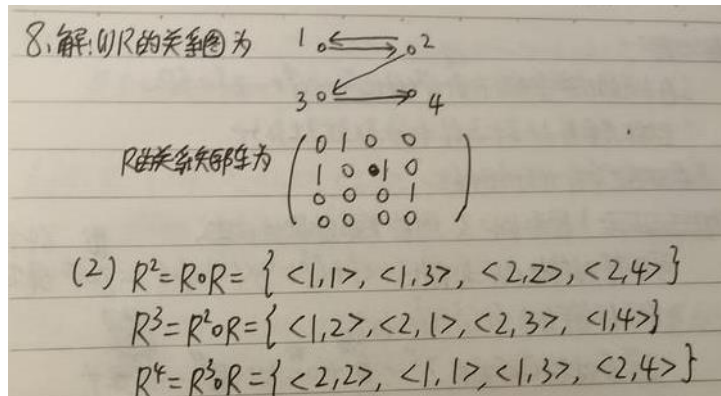 8、解:(1)R的关系图为 1 2
3 4
R的关系矩阵为
0 1 0 0
1 0 1 0
0 0 0 1
0 0 0 0
(2) R²=R∘R={<1,1>,<1,3>,<2,2>,<2,4>}
R³=R²∘R={<1,2>,<2,1>,<2,3>,<1,4>}
R⁴=R³∘R={<2,2>,<1,1>,<1,3>,<2,4>}